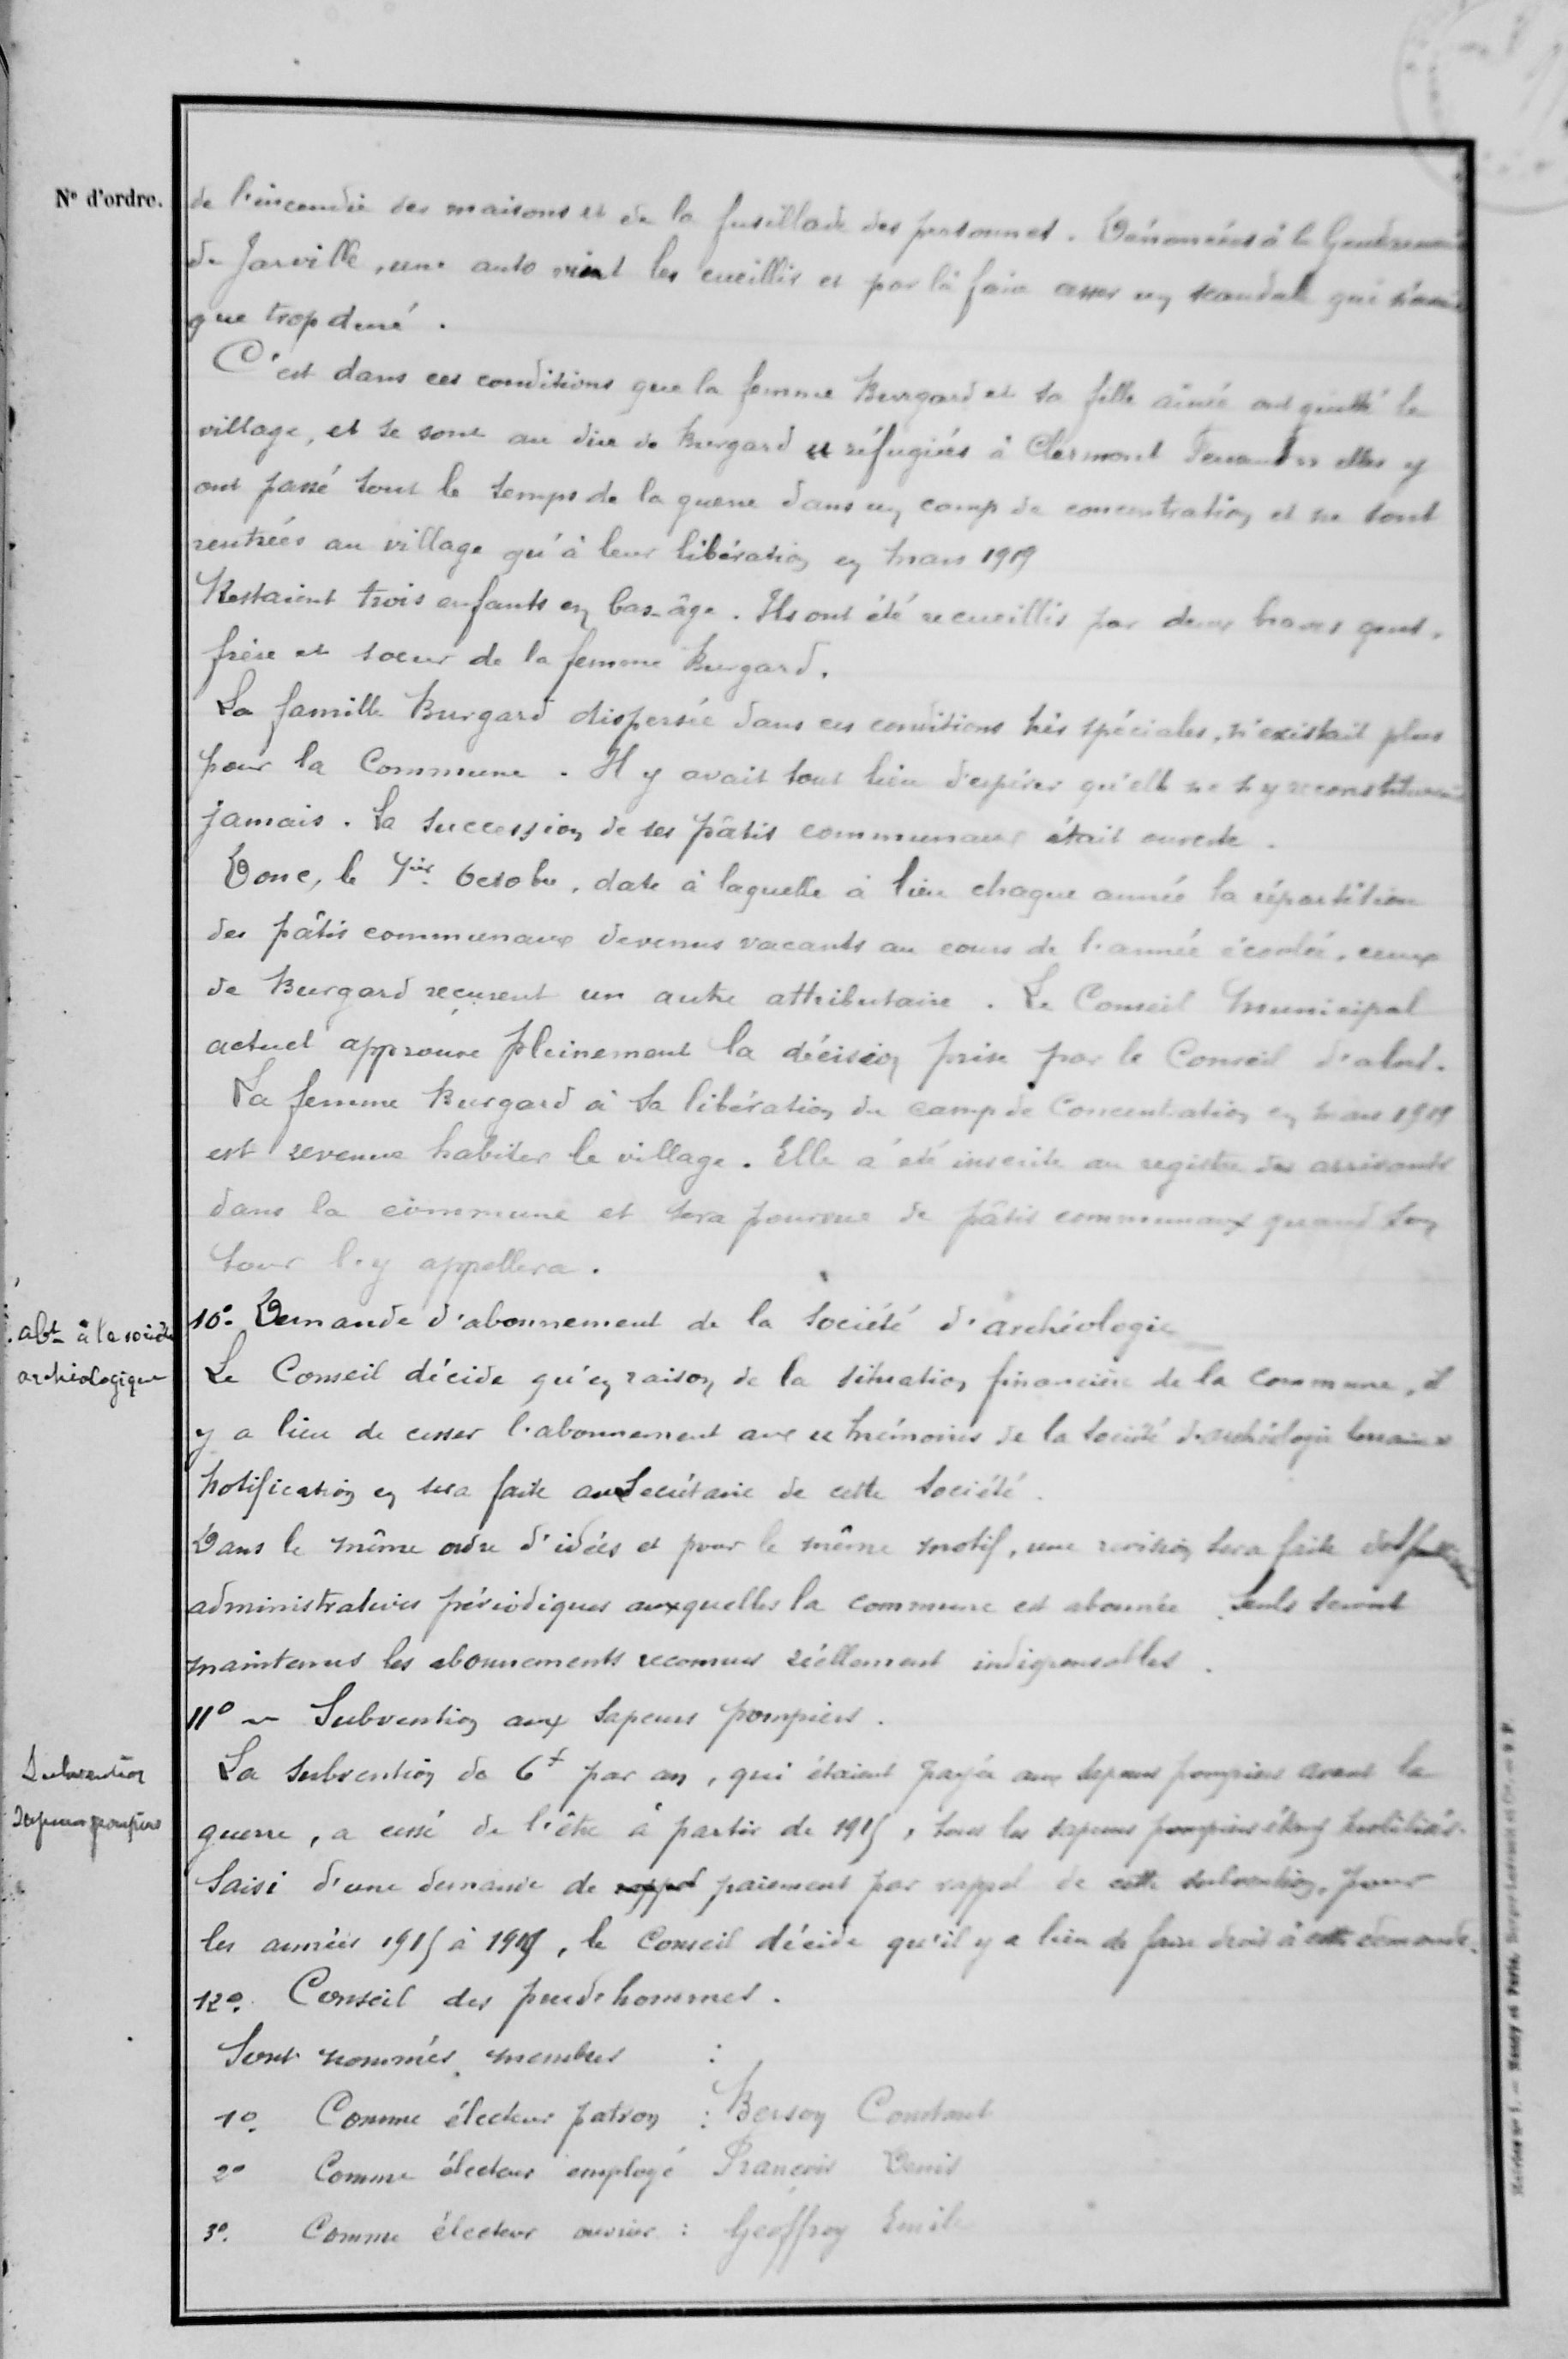 N° d'ordre.
de l'incendie des maisons et de la fusillade des personnes. Dénoncées à la Gendarmerie
de Jarville, une auto vint les cueillir et par là faire cesser un scandale qui n'avait
que trop duré.
C'est dans ces conditions que la femme Burgard et sa fille aînée ont quitté le
village, et se sont au dire de Burgard réfugiées à Clermont Ferrand elles y
ont passé tout le temps de la guerre dans un camp de concentration et ne sont
rentrées au village qu'à leur libération en mars 1919
Restaient trois enfants en bas-âge. Ils ont été recueillis par deux braves gens,
frère et soeur de la femme Burgard.
La famille Burgard dispersée dans ces conditions très spéciales, n'existait plus
pour la Commune. Il y avait tout lieu d'espérer qu'elle ne s'y reconstituerait
jamais. La succession de ses pâtis communaux était ouverte.
Donc, le 1ier Octobre, date à laquelle à lieu chaque année la répartition
des pâtis communaux devenus vacants au cours de l'année écoulée, ceux
de Burgard reçurent un autre attributaire. Le Conseil Municipal
actuel approuve pleinement la décision prise par le Conseil d'alors.
La femme Burgard à sa libération du camp de Concentration en mars 1919
est revenue habiter le village. Elle a été inscrite au registre des arrivants
dans la commune et sera pourvue de pâtis communaux quand son
tour l'y appellera.
abt à la société
archéologique
10°. Demande d'abonnement de la Société d'archéologie
Le Conseil décide qu'en raison de la situation financière de la commune, il
y a lieu de cesser l'abonnement aux mémoires de la Société d'archéologie lorraine
Notification en sera faite au Secrétaire de cette Société.
Dans le même ordre d'idées et pour le même motif, une revision sera faite des
administratives périodiques auxquelles la commune est abonnée. Seuls seront
maintenus les abonnements reconnus réellement indispensables.
11° - Subvention aux sapeurs pompiers.
Subvention
Sapeurs pompiers
La subvention de 6f par an, qui étaient payée aux sapeurs pompiers avant la
guerre, a cessé de l'être à partir de 1915, tous les sapeurs pompiers étant mobilisés.
Saisi d'une demande de rappel paiement par rappel de cette subvention, pour
les années 1915 à 1919, le Conseil décide qu'il y a lieu de faire droit à cette demande.
12°. Conseil des prudhommes.
Sont nommés membres :
1°. Comme électeur patron : Berson Constant
2° Comme électeur employé François Denis
3°. Comme électeur ouvrier : Geoffroy Emile